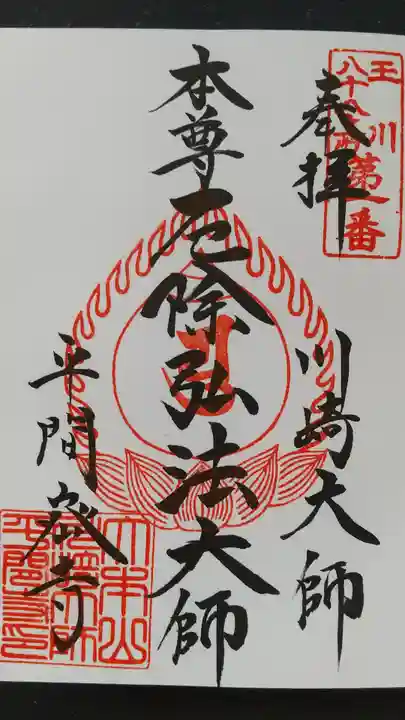 玉川
八十八ヶ所
第一番
奉拝
川崎大師
本尊厄除弘法大師
平間寺